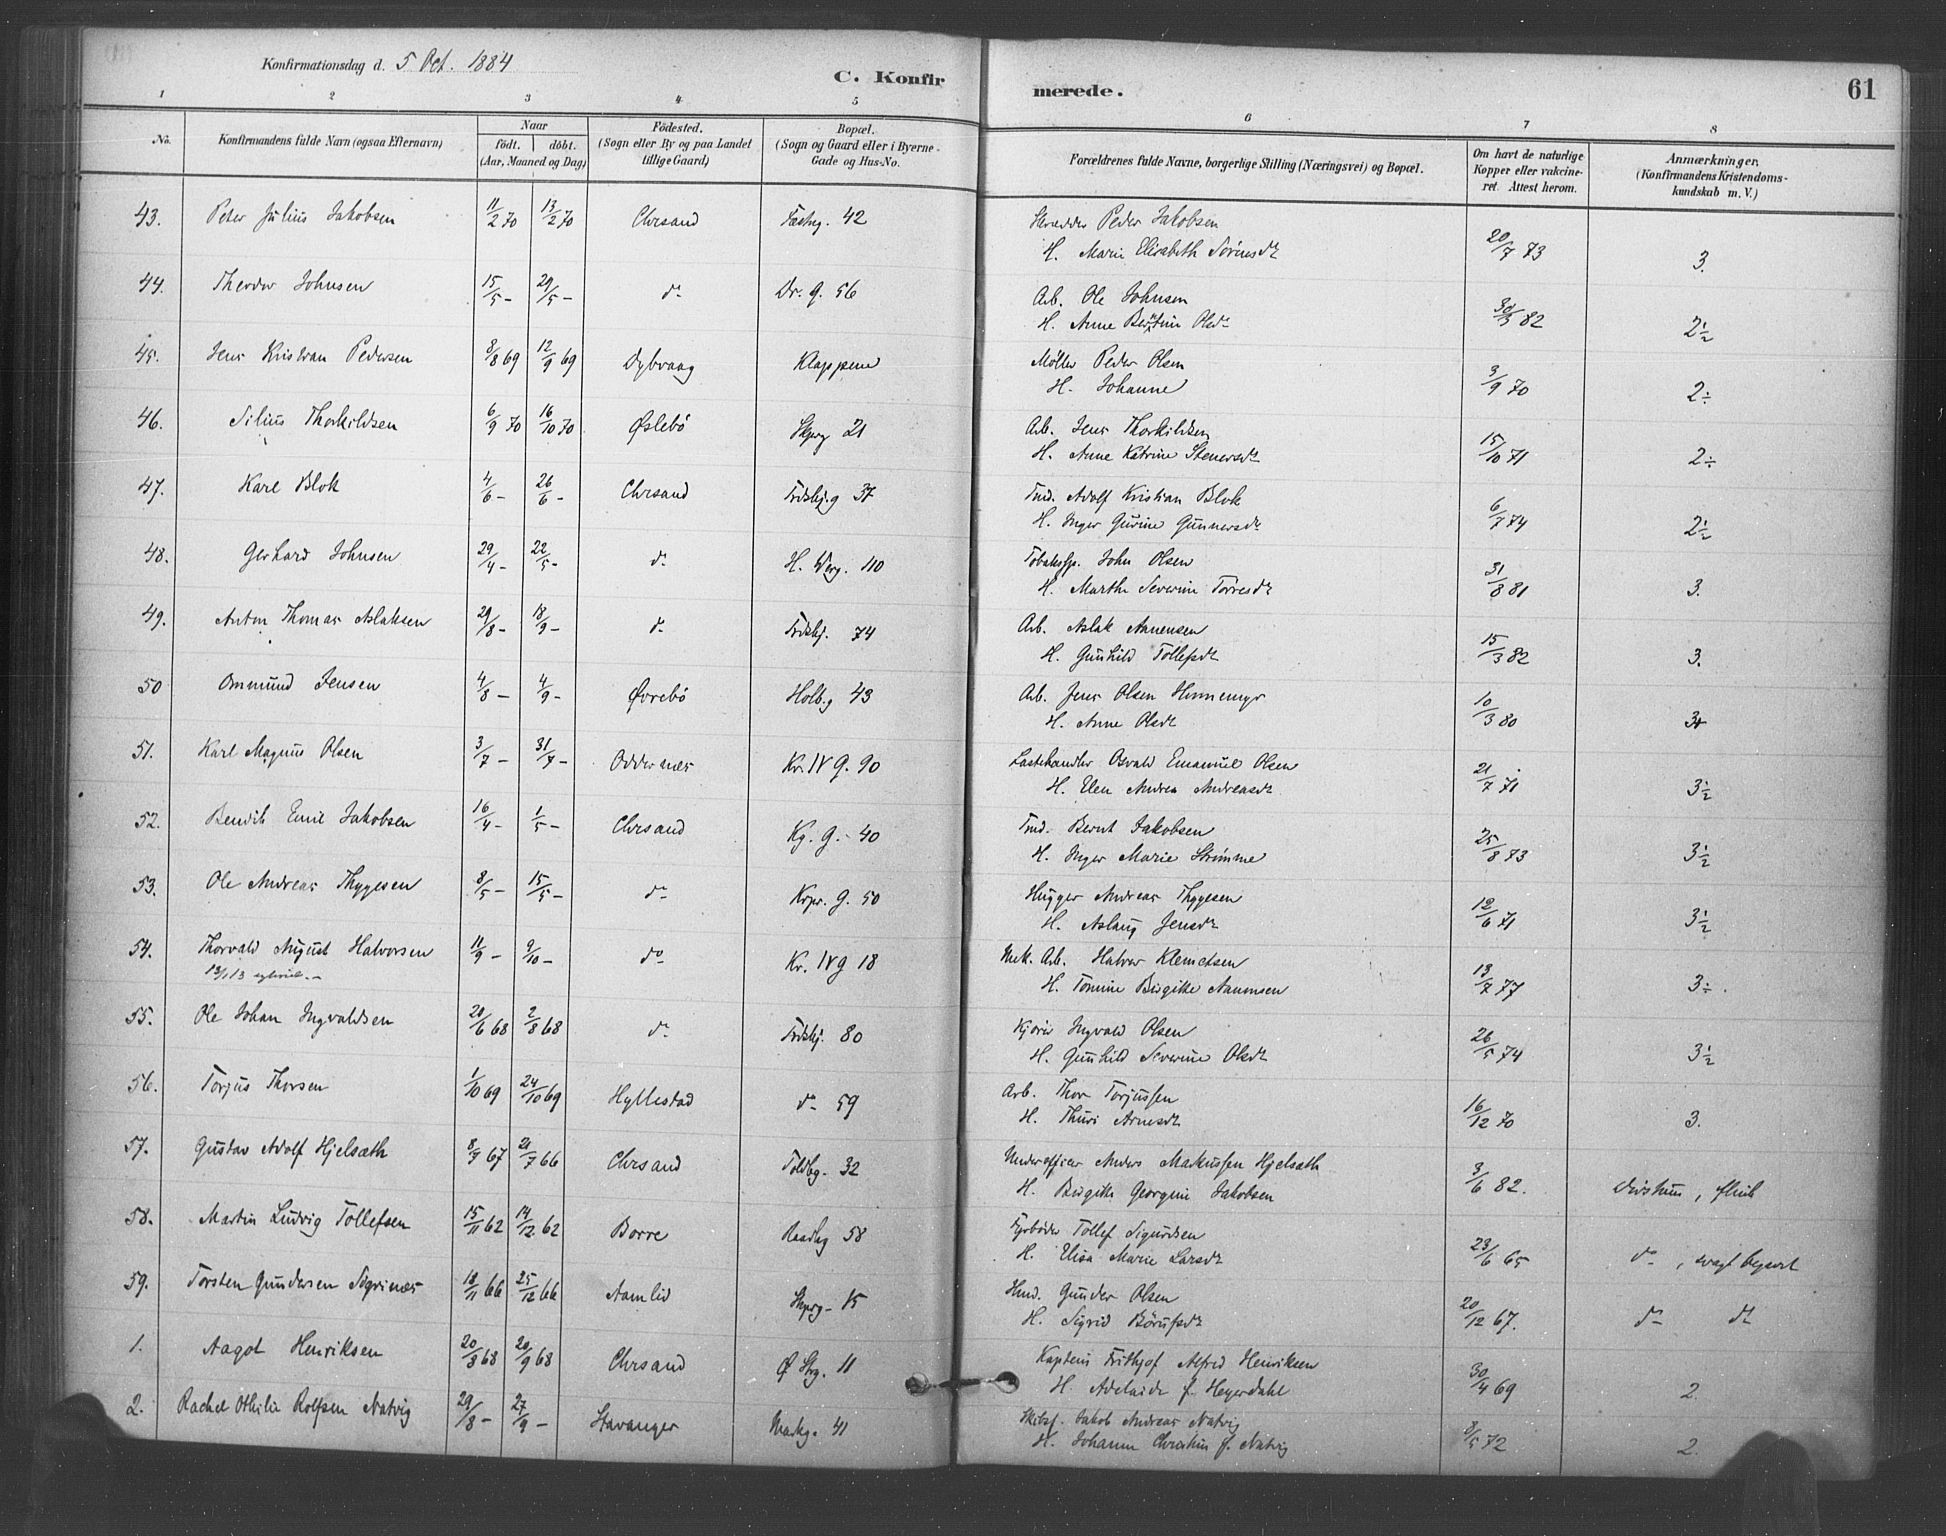 Konfirmationsdag d. 5 Oct. 1884
C. Konfirmerede.
61
1 2 3 4 5 6 7 8
No. Konfirmandens fulde Navn (ogsaa Efternavn) Naar födt. döbt. (Aar, Maaned og Dag) Födested. (Sogn eller By og paa Landet tillige Gaard) Bopæl. (Sogn og Gaard eller i Byerne Gade og Hus-No. Forældrenes fulde Navne, borgerlige Stilling (Næringsvei) og Bopæl. Om havt de naturlige Kopper eller vakcineret. Attest herom. Anmærkninger. (Konfirmandens Kristendomskundskab m. V.)
43. Peter Julius Jakobsen 11/2 70 13/2 70 Chrsand Fæstng. 42 Skrædder Peder Jakobsen 20/7 73 3.
H. Marie Elisabeth Sørensdr
44. Theodor Johnsen 15/5 - 29/5 - do Dr. g. 56 Arb. Ole Johnsen 82 2½
H. Anne Olsdr
45. Jens Kristian Pedersen 8/8 69 12/9 69 Dybvaag Klappene Møller Peder Olsen 3/9 70 2÷
H. Johanne
46. Silius Thorkildsen 6/9 70 16/10 70 Øslebö Skprg 21 Arb. Jens Thorkildsen 15/10 71 2÷
H. Anne Katrine Stenersdr
47. Karl Blok 4/6 - 26/6 - Chrsand Frdskj.g 37 Tmd. Adolf Kristian Blok 6/7 74 2½
H. Inger Gurine Gunnersdr
48. Gerhard Johnsen 29/4 - 22/5 - do H. Werg. 110 Tobaksp. John Olsen 31/8 81 3.
H. Marthe Severine Torresdr
49. Anton Thomas Aslaksen 29/8 - 18/9 - do Frdskj. 74 Arb. Aslak Aanensen 15/3 82 3.
H. Gunhild Tollefsdr
50 Ommund Jensen 4/8 - 4/9 - Øvrebö Holb.g 43 Arb. Jens Olsen Honnemyr 10/3 80 3+
H. Anne Olsdr
51. Karl Magnus Olsen 3/7 - 31/7 - Oddernæs Kr. IV g. 90 Lastehandler Osvald Emanuel Olsen 21/7 71 3½
H. Elen Andrea Andreasdr
52. Bendik Emil Jakobsen 16/4 - 1/5 - Chrsand Kg. g. - 40 Tmd. Bernt Jakobsen 25/8 73 3½
H. Inger Marie Strømme
53. Ole Andreas Thygesen 8/5 - 15/5 - do Krpr. g. 50 Hugger Andreas Thygesen 12/6 71 3½
H. Aslaug Jensdr
54. Thorvald August Halvorsen 11/9 - 9/10 - do Kr. IV g 18 Mek. Arb. Halvor Klemetsen 13/7 77 3÷.
H. Tomine Birgitte Aanonsen
55. Ole Johan Ingvaldsen 20/6 68 2/8 68 do Frdskj. 80 Kjører Ingvald Olsen 26/5 74 3½
H. Gunhild Severine Olsdr
56. Torjus Thorsen 1/10 69 24/10 69 Hyllestad do 59 Arb. Thor Torjussen 16/12 70 3.
H. Thuri Arnesdr
57. Gustav Adolf Hjelsæth 67 21/7 66 Chrsand Toldbg. 32 Underofficer Anders Markussen Hjelsæth 3/6 82. 
H. Birgitte Georgine Jakobsen
58. Martin Ludvig Tollefsen 15/11 62 14/12 62 Borre Raadhg 58 Fyrbøder Tollef Sigurdsen 23/6 65 do, svagt begavet
H. Elisa Marie Larsdr
59. Torsten Gundersen 18/11 66 25/12 66 Aamlid Skprg - 15 Hmd. Gunder Olsen 20/12 67. do do
H. Sigrid
1. Aagot Henriksen 20/8 68 20/9 68 Chrsand Ø Strg. 11 Kaptein Frithjof Alfred Henriksen 30/4 69 2.
H. Adelaide f. Heyerdahl
2. Rachel Othilie Rolfsen Natvig 29/8 - 27/9 - Stavanger Markg. 41 Skibsf. Jakob Andreas Natvig 8/5 72 2.
H. Johanne Christine f. Natvig